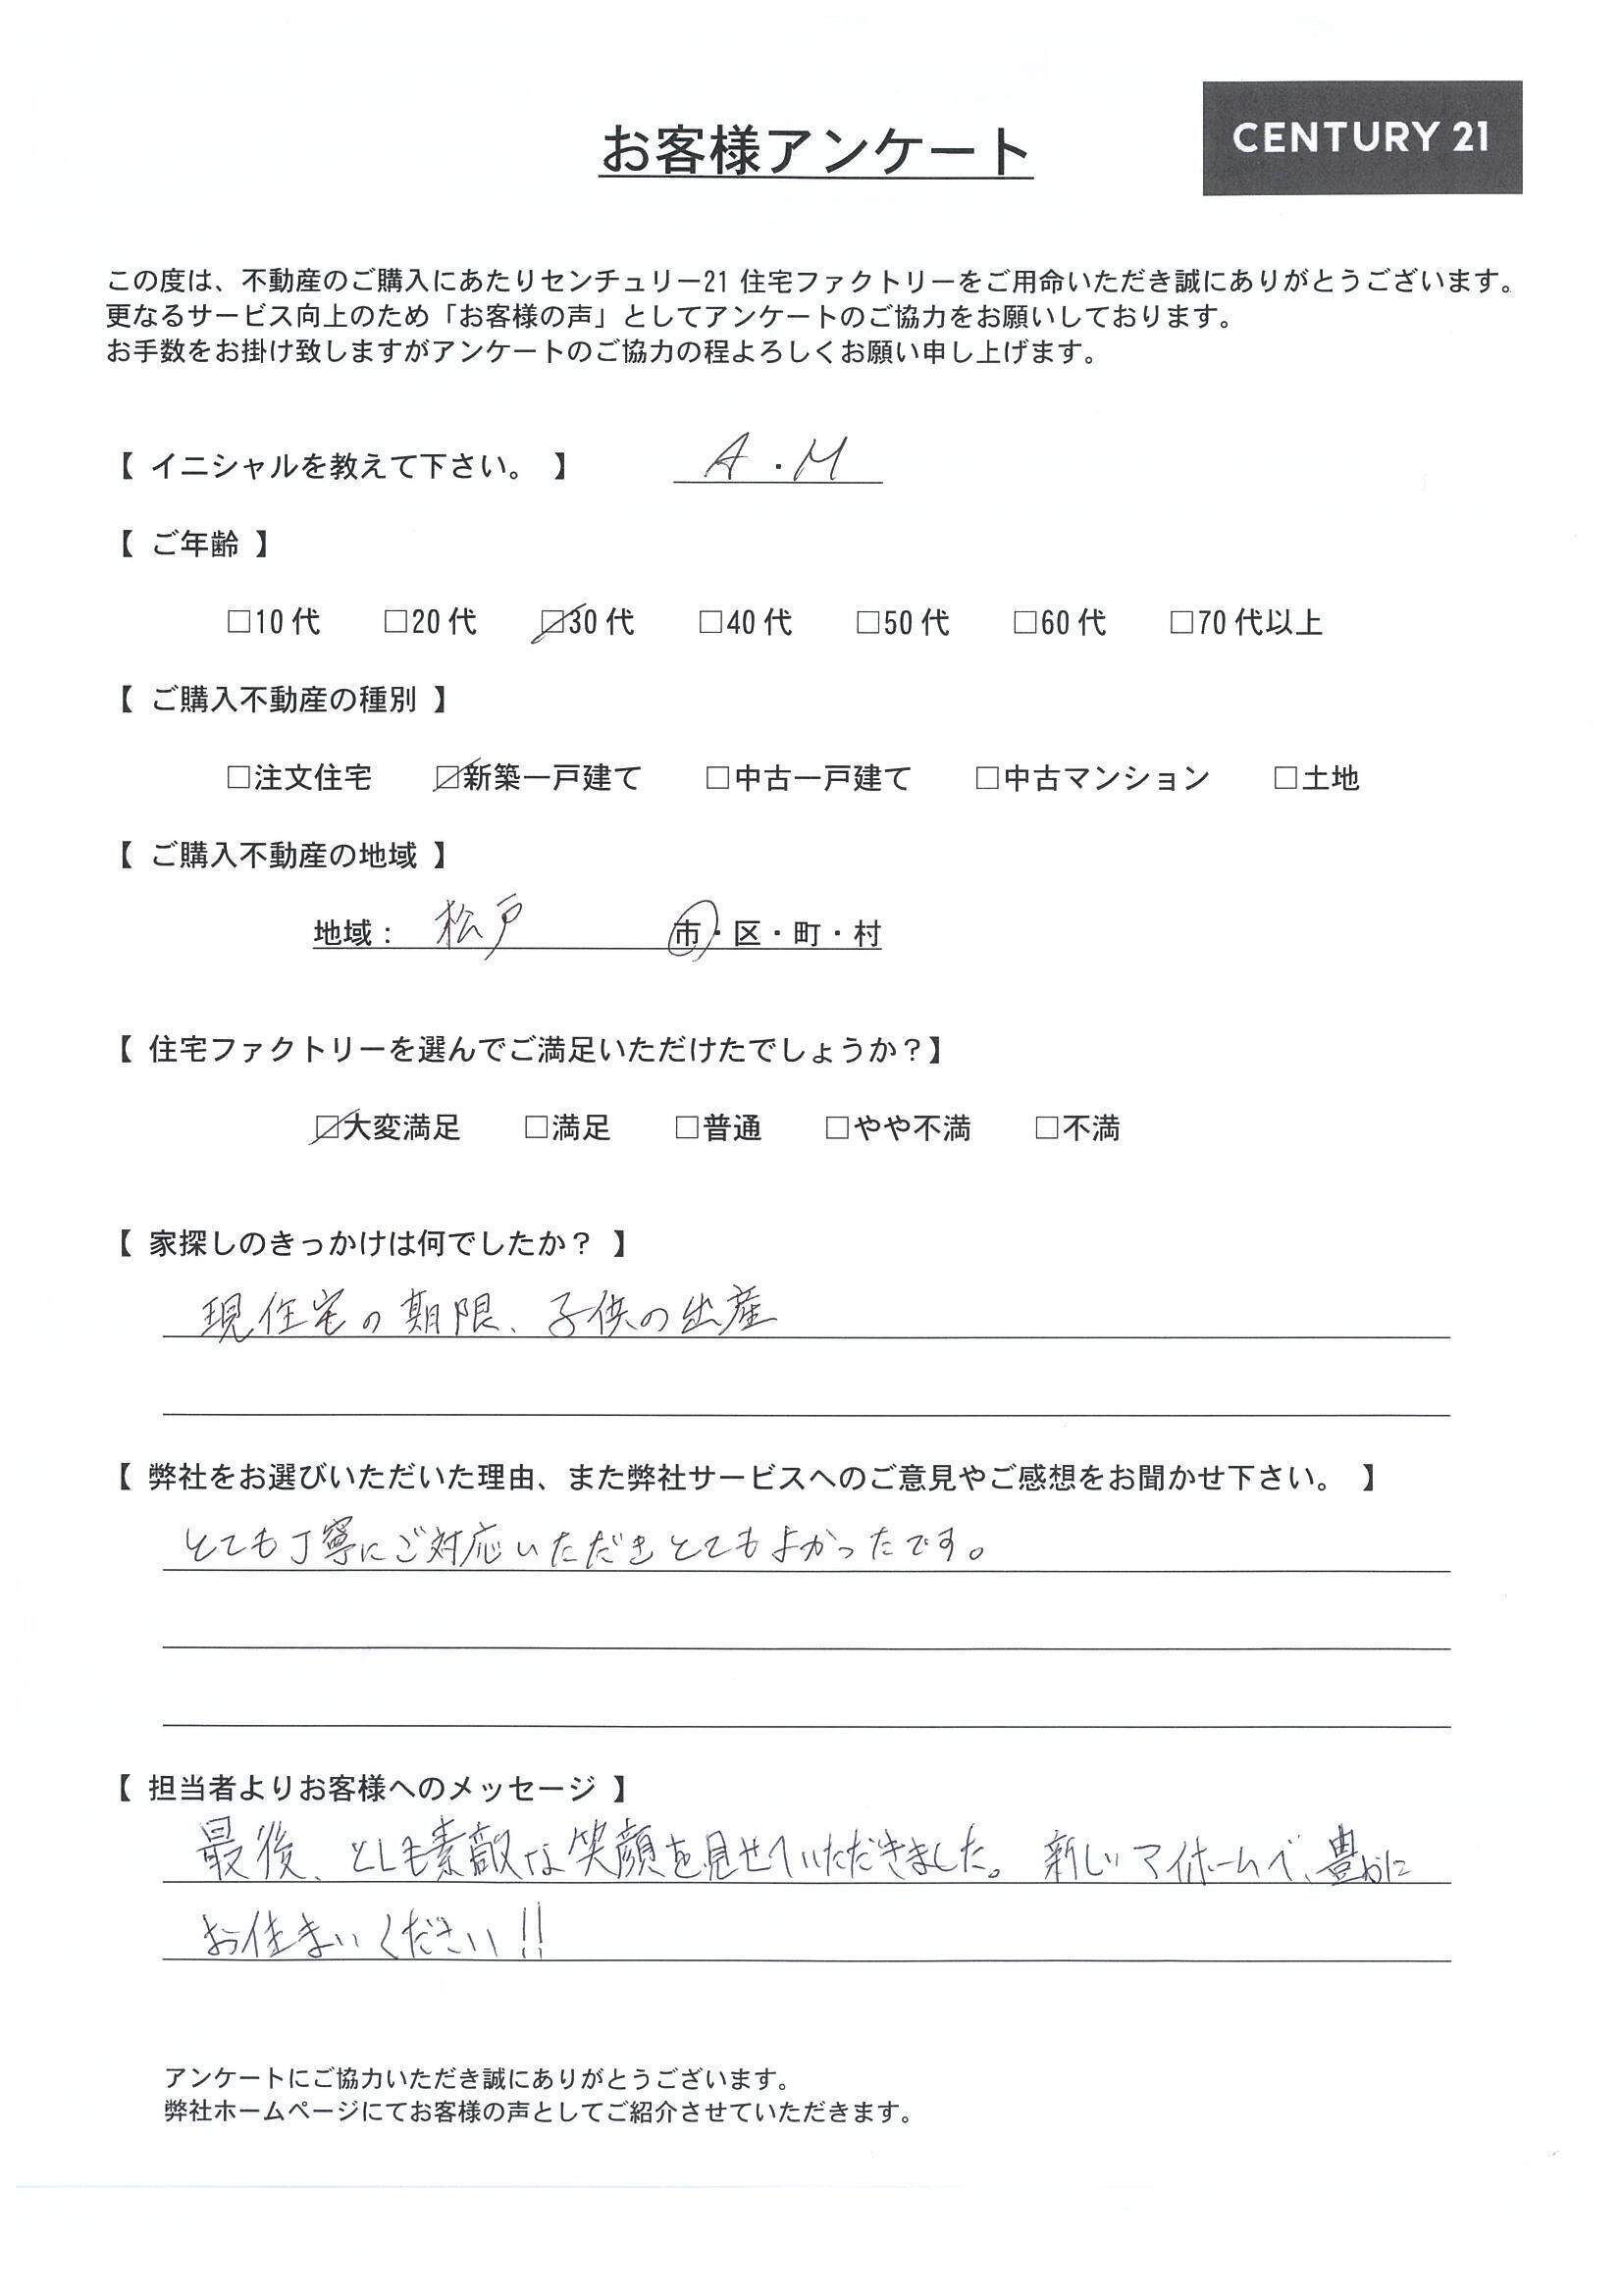 お客様アンケート
CENTURY 21
この度は、不動産のご購入にあたりセンチュリー21 住宅ファクトリーをご用命いただき誠にありがとうございます。
更なるサービス向上のため「お客様の声」としてアンケートのご協力をお願いしております。
お手数をお掛け致しますがアンケートのご協力の程よろしくお願い申し上げます。
【 イニシャルを教えて下さい。 】 A・M
【 ご年齢 】
□10代 □20代 ☑30代 □40代 □50代 □60代 □70代以上
【 ご購入不動産の種別 】
□注文住宅 ☑新築一戸建て □中古一戸建て □中古マンション □土地
【 ご購入不動産の地域 】
地域： 松戸 市・区・町・村
【 住宅ファクトリーを選んでご満足いただけたでしょうか？】
☑大変満足 □満足 □普通 □やや不満 □不満
【 家探しのきっかけは何でしたか？ 】
現住宅の期限、子供の出産
【 弊社をお選びいただいた理由、また弊社サービスへのご意見やご感想をお聞かせ下さい。 】
とても丁寧にご対応いただきとてもよかったです。
【 担当者よりお客様へのメッセージ 】
最後、とても素敵な笑顔を見せていただきました。新しいマイホームで、豊かに
お住まいください!!
アンケートにご協力いただき誠にありがとうございます。
弊社ホームページにてお客様の声としてご紹介させていただきます。